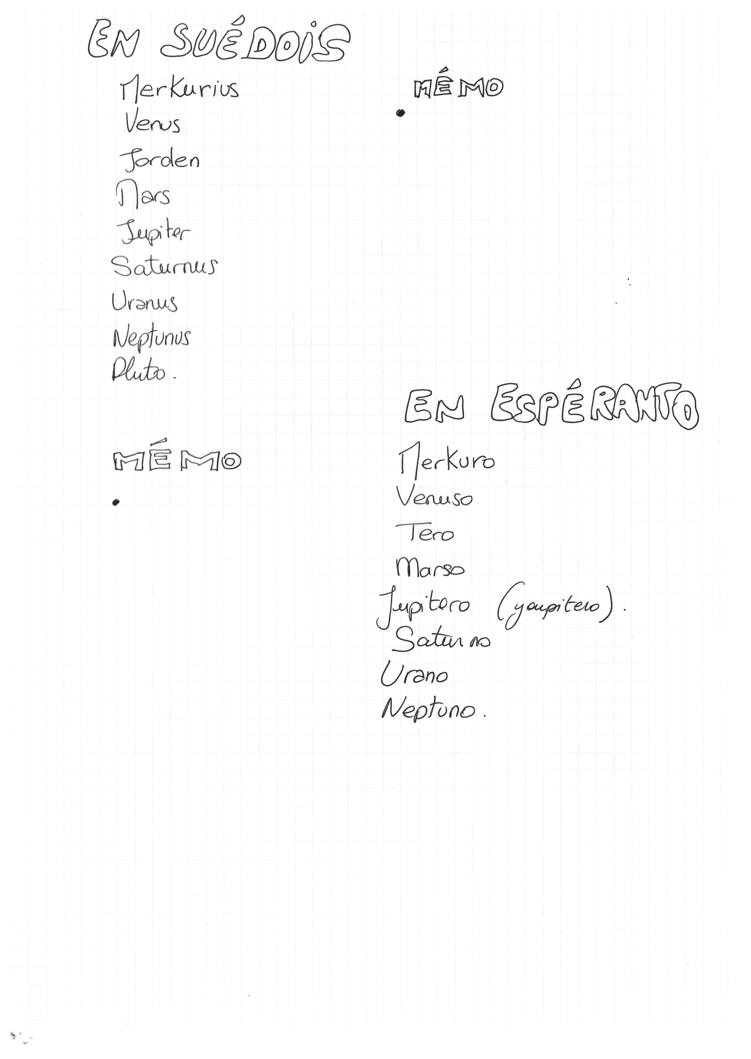 EN SUÉDOIS
Merkurius
Venus
Jorden
Mars
Jupiter
Saturnus
Uranus
Neptunus
Pluto.
MÉMO
MÉMO
EN ESPÉRANTO
Merkuro
Venuso
Tero
Marso
Jupitero (youpitero).
Saturno
Urano
Neptuno.